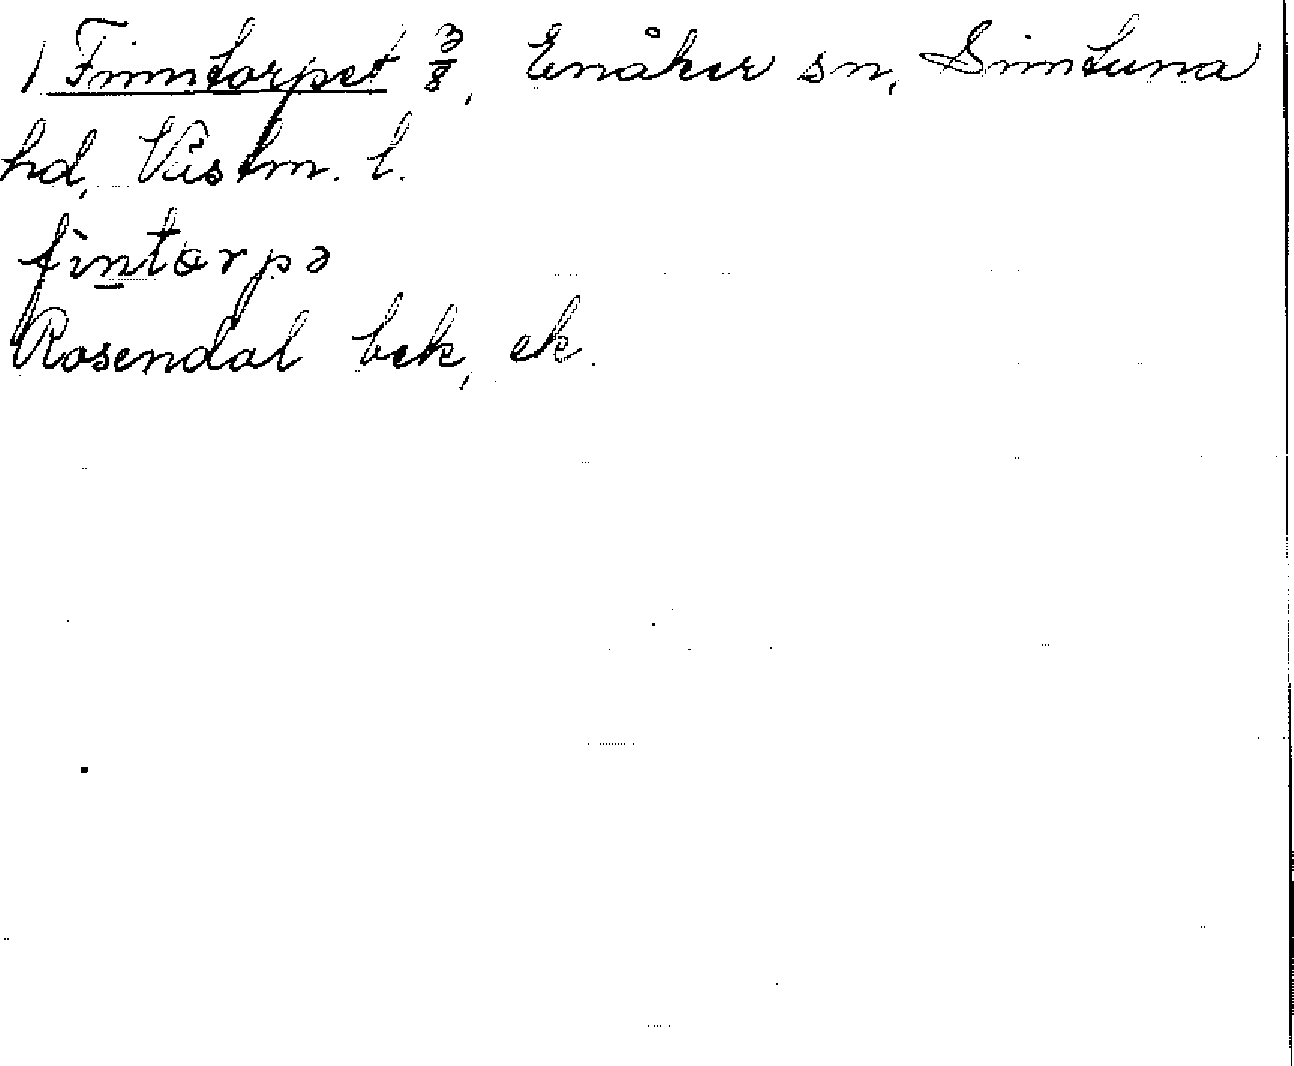 1 Finntorpet 3/8, Enåker sn, Simtuna
hd, Västm. l.
fìntɷrpə
Rosendal bek, ek.